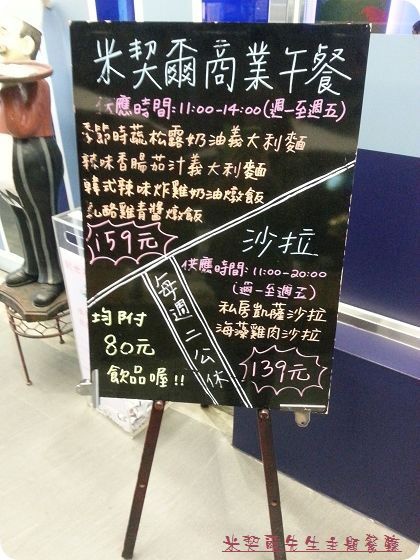 米契爾商業午餐
供應時間:11:00-14:00(週一至週五)
季節時蔬松露奶油義大利麵
辣味香腸茄汁義大利麵
韓式辣味炸雞奶油燉飯
乳酪雞青醬燉飯
159元
沙拉
供應時間:11:00-20:00
(週一至週五)
私房凱薩沙拉
海藻雞肉沙拉
139元
每週二公休
均附
80元
飲品喔!!
米契爾先生主題餐廳